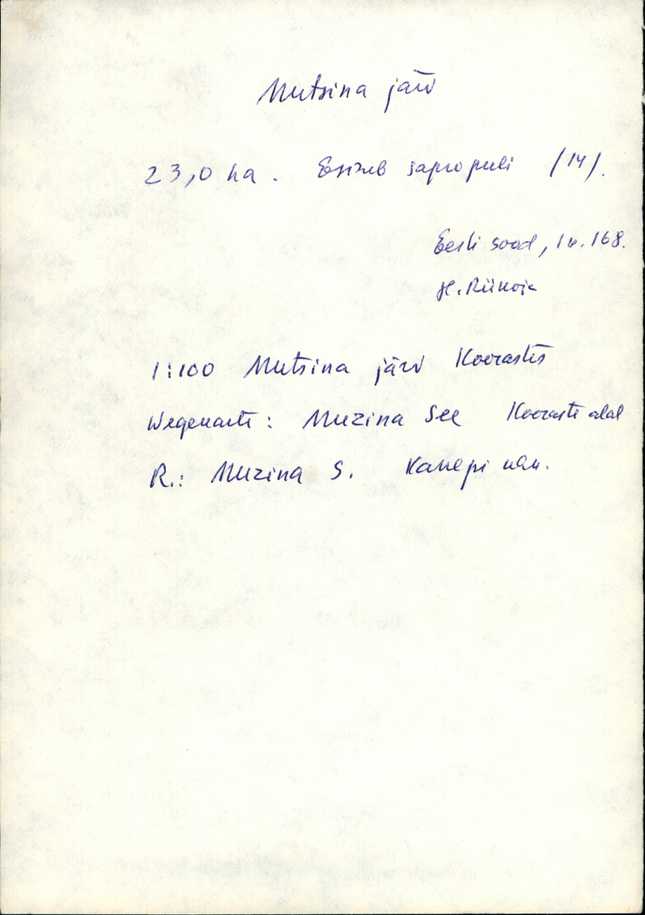 Mutsina järv
23,0 ha. Esineb sapropeli (14).
Eesti sood, lk. 168.
H. Riikoja
1:100 Mutsina järv Koorastes
Wegekarte: Muzina See Kooraste alal
R.: Muzina S. Kanepi khk.